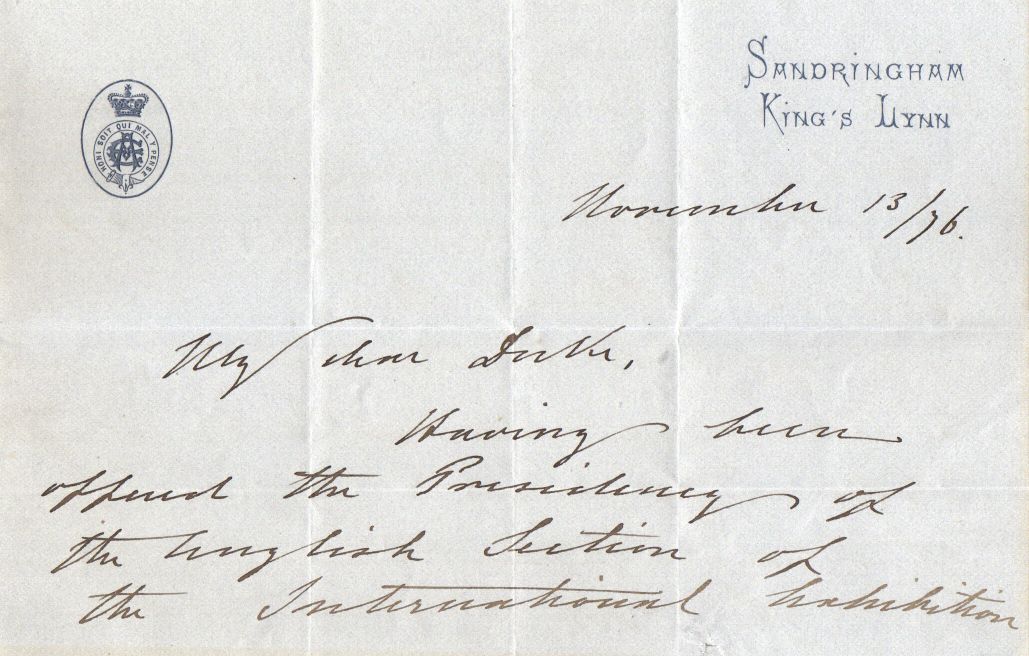 HONI SOIT QUI MAL Y PENSE
SANDRINGHAM
KING'S LYNN
November 13/76.
My dear Duke,
Having been
offered the Presidency of
the English Section of
the International Exhibition